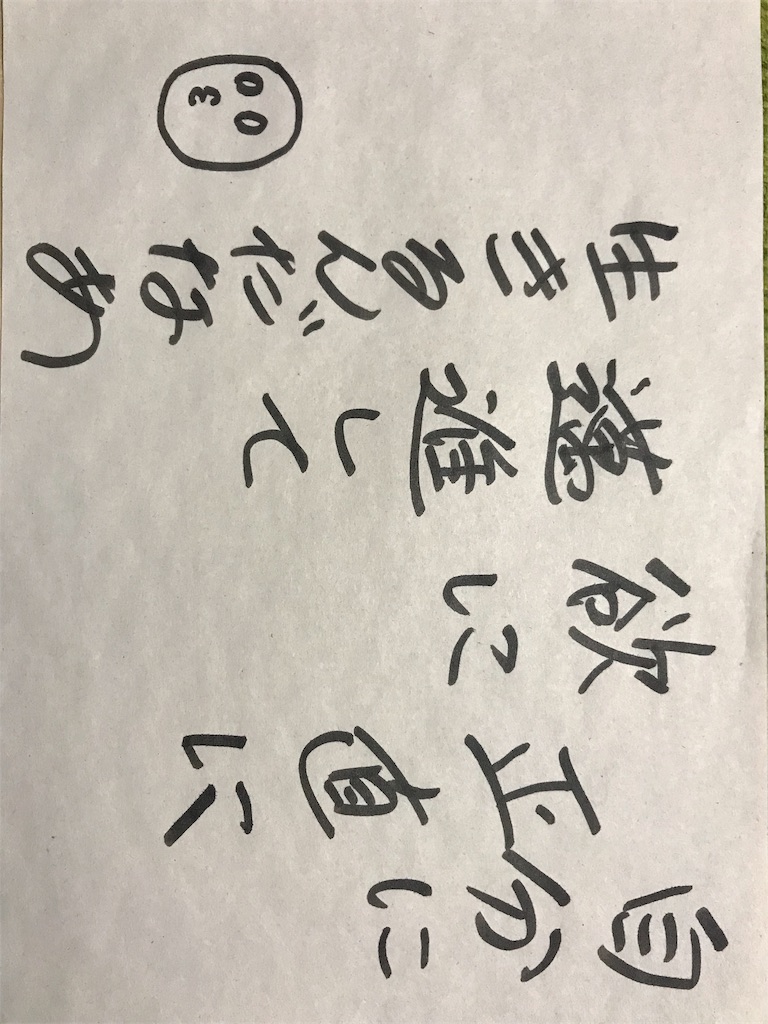 自分に
正直に
欲に
邁進して
生きるんだなあ